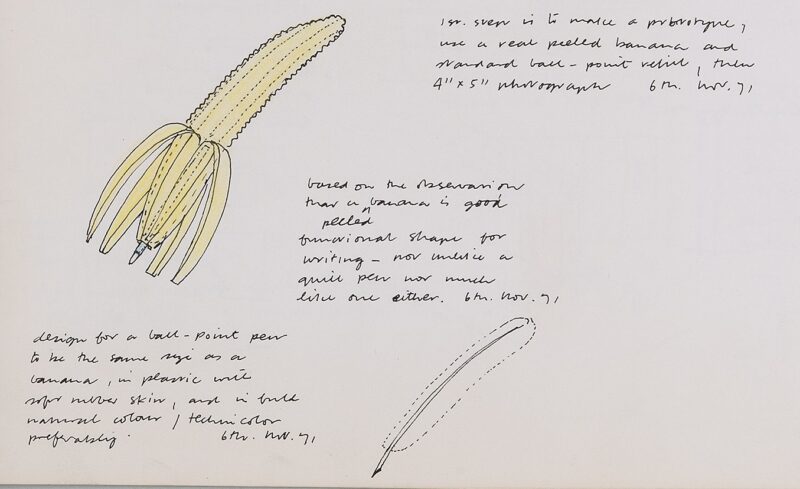 1st. step is to make a prototype,
use a real peeled banana and
standard ball-point refill, then
4" x 5" photograph 6th. Nov. 71
based on the observation
that a peeled banana is good
functional shape for
writing - not unlike a
quill pen nor much
like one either. 6th. Nov. 71
design for a ball-point pen
to be the same size as a
banana, in plastic with
soft rubber skin, and in full
natural colour / technicolor
preferably. 6th. Nov. 71